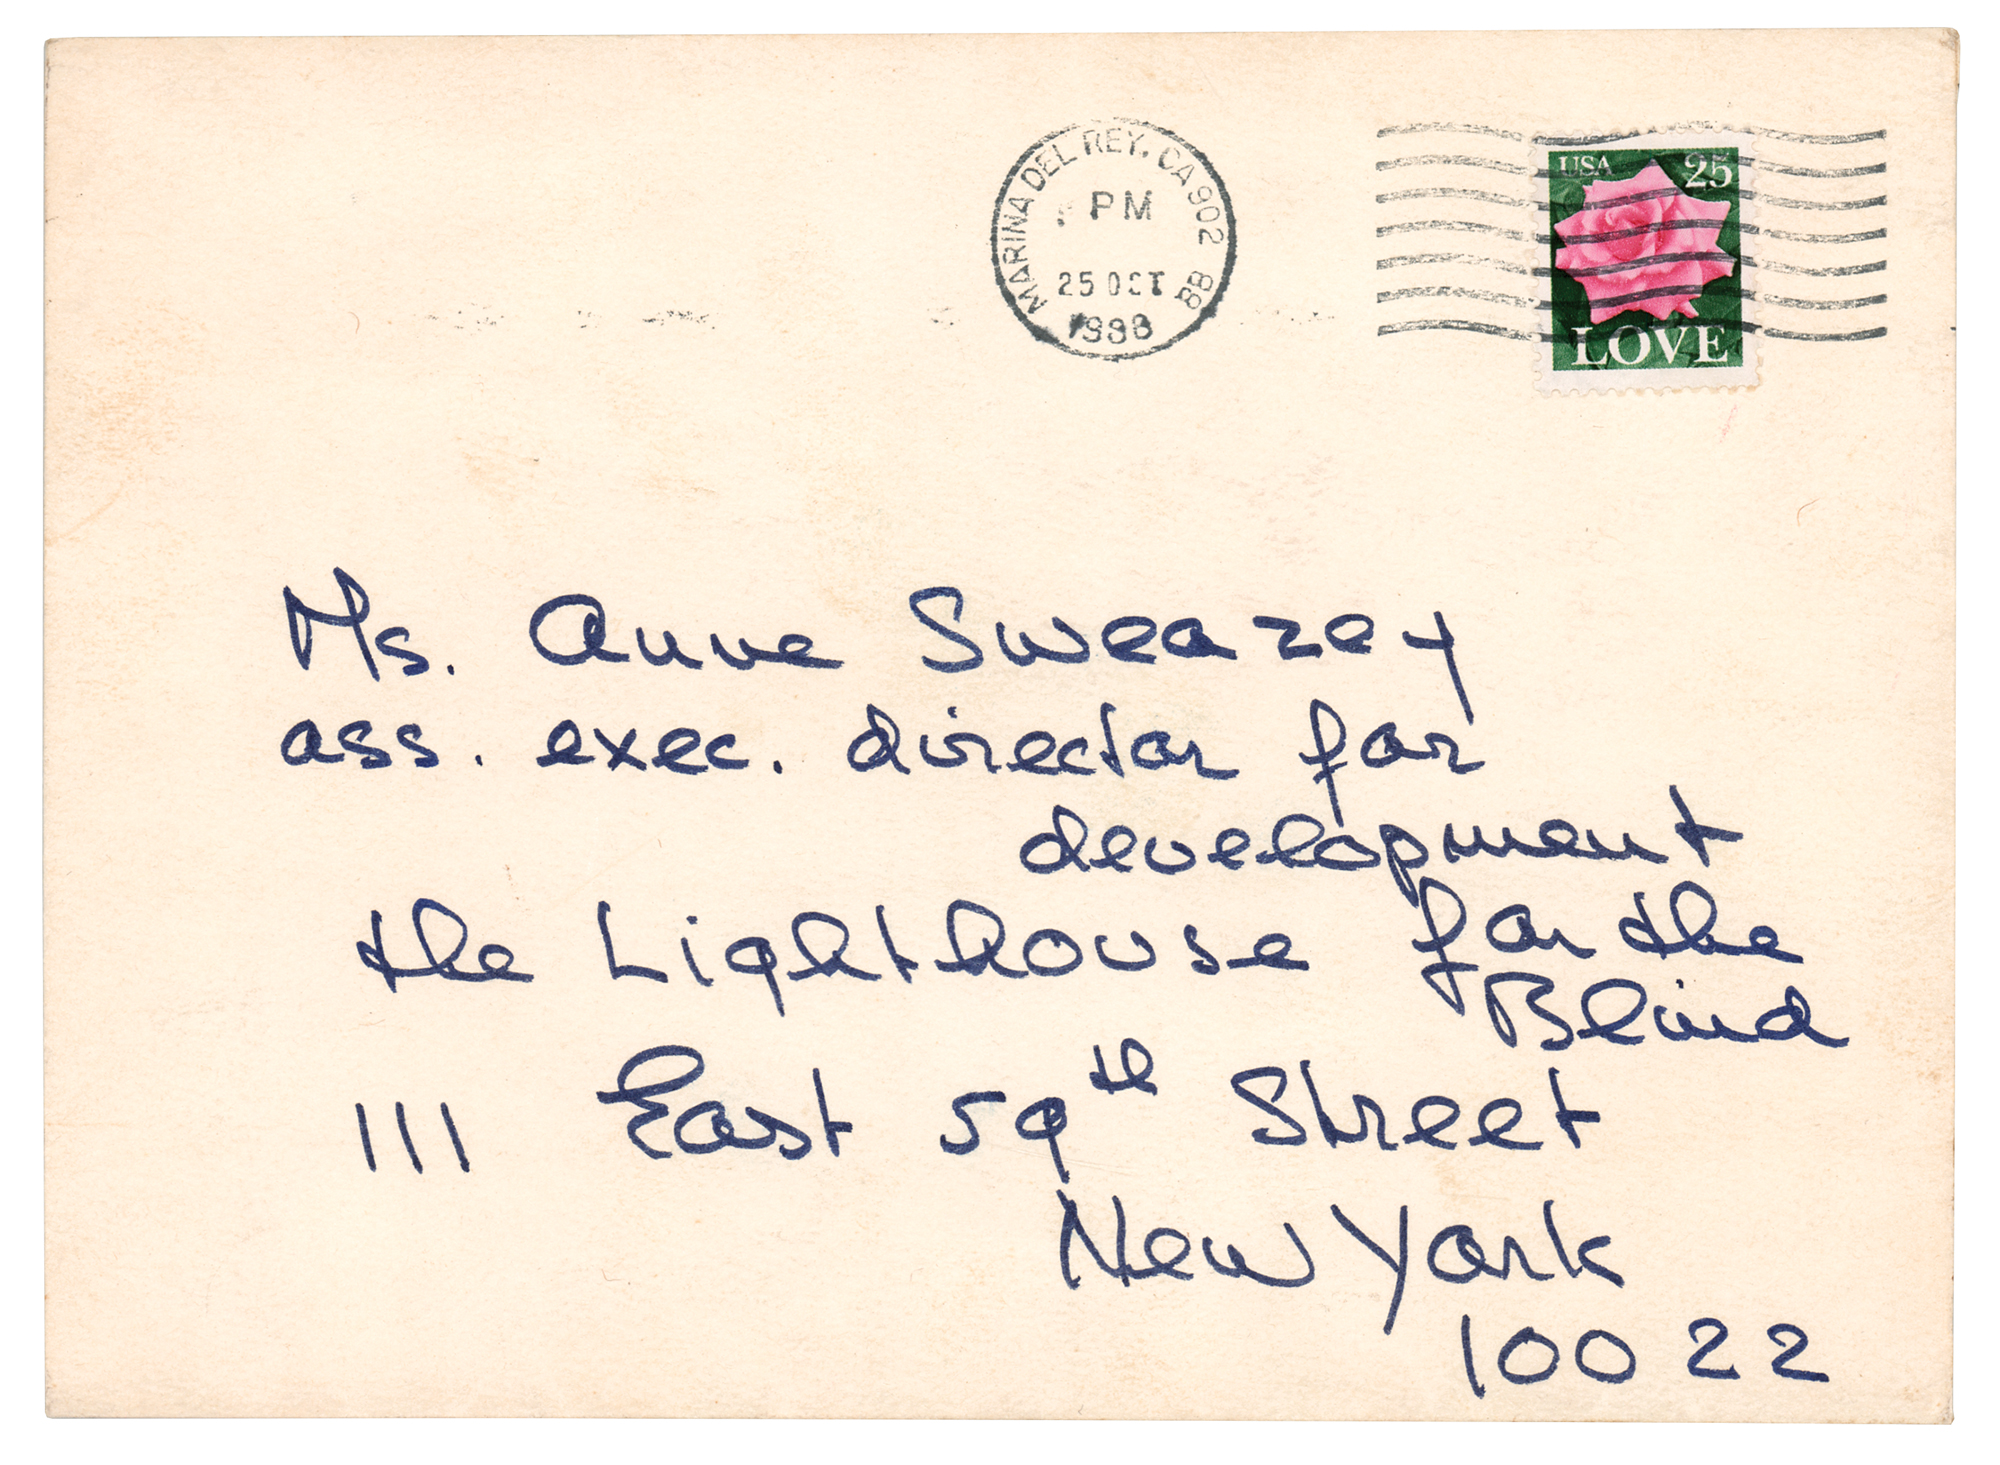 MARINA DEL REY, CA 902 88
PM
25 OCT
1988
USA 25
LOVE
Ms. Anne Sweazey
ass. exec. director for
development
the Lighthouse for the
Blind
111 East 59th Street
New York
10022